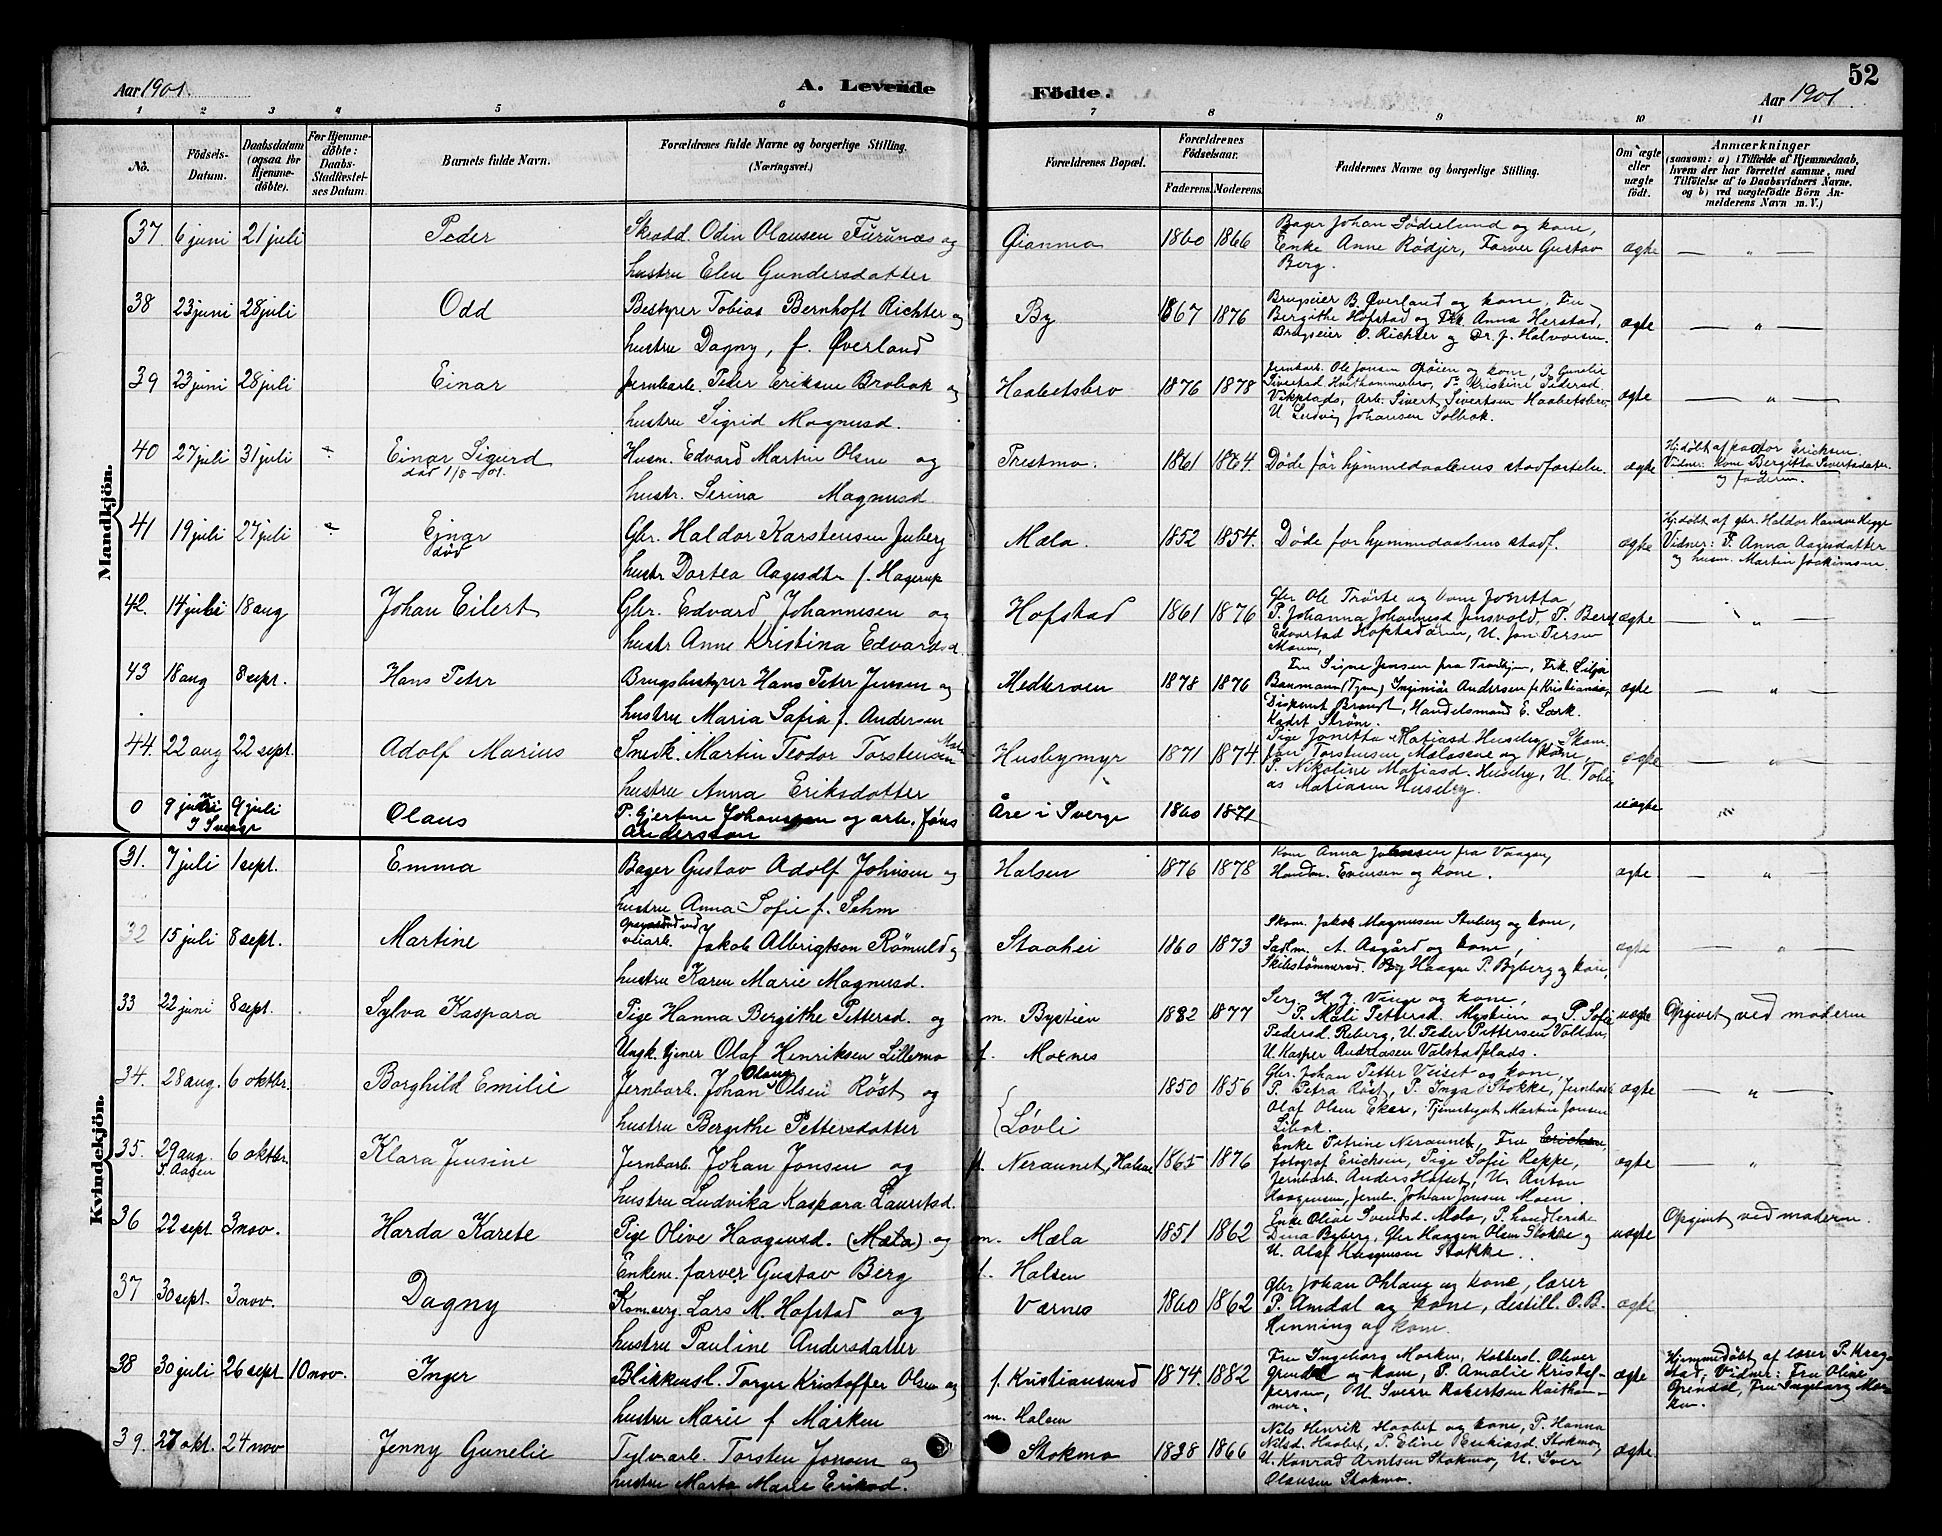 52
Aar 1901. A. Levende Födte. Aar 1901
1 2 3 4 5 6 7 8 9 10 11
No. Födsels-Datum. Daabsdatum (ogsaa for Hjemmedøbte). For Hjemmedøbte: Daabs-Stadfæstelses Datum. Barnets fulde Navn. Forældrenes fulde Navne og borgerlige Stilling. (Næringsvei.) Forældrenes Bopæl. Forældrenes Fødselsaar. Faderens. Moderens. Faddernes Navne og borgerlige Stilling. Om ægte eller uægte födt. Anmærkninger (saasom: a) i Tilfælde af Hjemmedaab, hvem der har forrettet samme, med Tilföielse af to Daabsvidners Navne. og b) ved uægtefödte Börn Anmelderens Navn m. V.)
Mandkjön.
37 6 juni 21 juli Peder Odin Olausen Furunæs og 1860 1866 Bager Johan Söderlund og kone,
Enke Anne Rödjer, Farver Gustav ægte — " —
hustru Elen Gundersdatter Berg.
38 23 juni 28 juli Odd Bestyrer Tobias Bernhoft Richter og By 1867 1876 Brugseier B. Øverland og kone, Fru
Bergithe Hofstad og Frk. Anna Herstad, ægte — " —
hustru Dagny, f. Øverland Brugseier O. Richter og Dr. J. Halvorsen.
39 23 juni 28 juli Einar Jernbarb. Peder Eriksen Brobak og Haabetsbro 1876 1878 Jernbarb. Ole Jonsen og kone, P. Gunelie
P. Kristine Pedersd.
Arb. Sivert Sivertsen Haabetsbro, ægte — " —
hustru Sigrid Magnusd. U. Ludvig Johansen Solbak.
40 27 juli 31 juli Einar Sigurd Husm. Edvard Martin Olsen og Trestmo. 1861 1864. Døde før hjemmedaabens stadfæstelse. ægte Hj.døbt af pastor Ericksen.
død 1/8 -01. Vidner: Kone Bergitta Sivertsdatter
hustr. Serina Magnusd og faderen.
41 19 juli 27 juli Ejnar Gbr. Haldor Karstensen Juberg Mæla. 1852 1854. Døde før hjemmedaabens stadf. ægte Hj.døbt af gbr. Haldor Hansen Hegge
død Vidner: P. Anna Aagesdatter
hustr Dortea Aagesdtr f. Hagerup og husm. Martin Joakimsen.
42. 14 juli 18 aug Johan Eilert Gbr. Edvard Johannesen og Hofstad 1861 1876 Gbr Ole Trøite og kone Jonetta,
P. Johanna Johannesd Jensvold, P. Berit ægte — " —
hustr Anne Kristina Edvardsd. U. Jon Persen
Moren,
43 18 aug 8 sept. Hans Peter Brugsbestyrer Hans Peter Jensen og 1878 1876 Fru Signe Jensen fra Trondhjem, Frk. Lilja
Baumann Ingeniør Andersen fr Kristiania, ægte — " —
hustru Maria Safia f. Andersen Disponent Brandt, Handelsmand E. Lærk.
Kadet Strøm.
44. 22 aug 22 sept. Adolf Marius Snedk. Martin Teodor Torstensen Husbymyr 1871 1874. Pige Jonetta Matiasd. Huseby, Skom.
Torstensen og kone, ægte — " —
hustru Anna Eriksdatter P. Nikoline Matiasd. Huseby, U. Tobias Matiasen Huseby.
0 9 juni 9 juli Olaus P. Gjertine Johansen og arb. Jöns Åre i Sverge 1860 1871 uægte "
I Sverge Andersson
Kvindekjön.
31. 7 juli 1 sept. Emma Bager Gustav Adolf Johnsen og Halsen 1876 1878 Kone Anna Johansen fra Vaagen,
Handm. Evensen og kone. ægte — " —
hustru Anna Sofie f. Sehm
32 15 juli 8 sept. Martine veiarb. Jakob Albrigtson Römuld og Staahei 1860 1873 Skom. Jakob Magnussen Stuberg og kone,
Sadlm. A. Aagård og kone, ægte — " —
hustru Karen Marie Magnusd. Haagen P. Byberg og kone,
33 22 juni 8 sept. Sylva Kaspara Pige Hanna Bergithe Pettersd. og m. Bystien 1882 1877 Serg. H. J. Vinge og kone,
P. Mali Pettersd. Mystien og P. Sofie uægte Opgivet ved moderen
Ungk. tjener Olaf Henriksen Lillemo f. Moenes Pedersd. Reberg, U. Peder Pettersen
U. Kasper Andreasen Valstadplads.
34. 28 aug. 6 oktbr. Borghild Emilie Jernbarb. Johan Olaus Olsen Röst og Løvli 1850 1856 Gbr. Johan Petter Veiset og kone,
P. Petra Röst, P. Inga Stokke, Jernbarb. ægte — " —
hustru Bergithe Pettersdatter Olaf Olsen Eker, Martin Jonsen
35. 29 aug. 6 oktbr. Klara Jensine Jernbarb. Johan Jonsen og Neraunet, Halsen 1865 1876 Enke Petrine Neraunet, Fru
S. Aasen fotograf Erichsen, Pige Sofie Reppe, ægte — " —
hustru Ludvika Kaspara Lauritsd. Jernbarb. Anders Hofset, U. Anton
Haagensen, Jernb. Johan Jonsen Moen.
36 22 sept. 3 nov. Harda Karete Pige Olive Haagensd. (Mæla) og m. Mæla 1851 1862 Enke Olive Svendsd. Mæla, P. handlerske
Dina Byberg, Gbr Haagen Olsen Stokke og uægte Opgivet ved moderen.
Enkem. farver Gustav Berg f. Halsen U. Olaf Haagensen Stokke.
37 30 sept. 3 nov. Dagny Kom.serg. Lars M. Hofstad og Værnes 1860 1862 Gbr Johan Öhlaug og kone, lærer
P. Amdal og kone, destill. O. B. ægte
hustru Pauline Andersdatter Henning og kone.
38 30 juli 26 sept 10 nov. Inger Blikkensl. Torger Kristoffer Olsen og f. Kristiansund 1874. 1882 Fru Ingeborg Morken, Kobbersl. Oliver
Grendal og kone, P. Amalie Kristofpersen, ægte Hjemmedøbt af lærer P. Kregstad, Vidner: Fru Oline
hustru Marie f Märken m. Halsen U. Sverre Robertsen Kaithammer. Grendal, Fru Ingeborg Morken
39. 27 okt. 24 nov Jenny Gunelie Teglvarb. Torsten Jonsen og Stokmo 1838 1866 Nils Henrik Haabet og kone, P. Hanna
Nilsd. Haabet, P. Eline Stokmo, ægte
hustru Marta Marie Eriksd. U. Konrad Arntsen Stokmo, U. Iver
Olausen Stokmo.